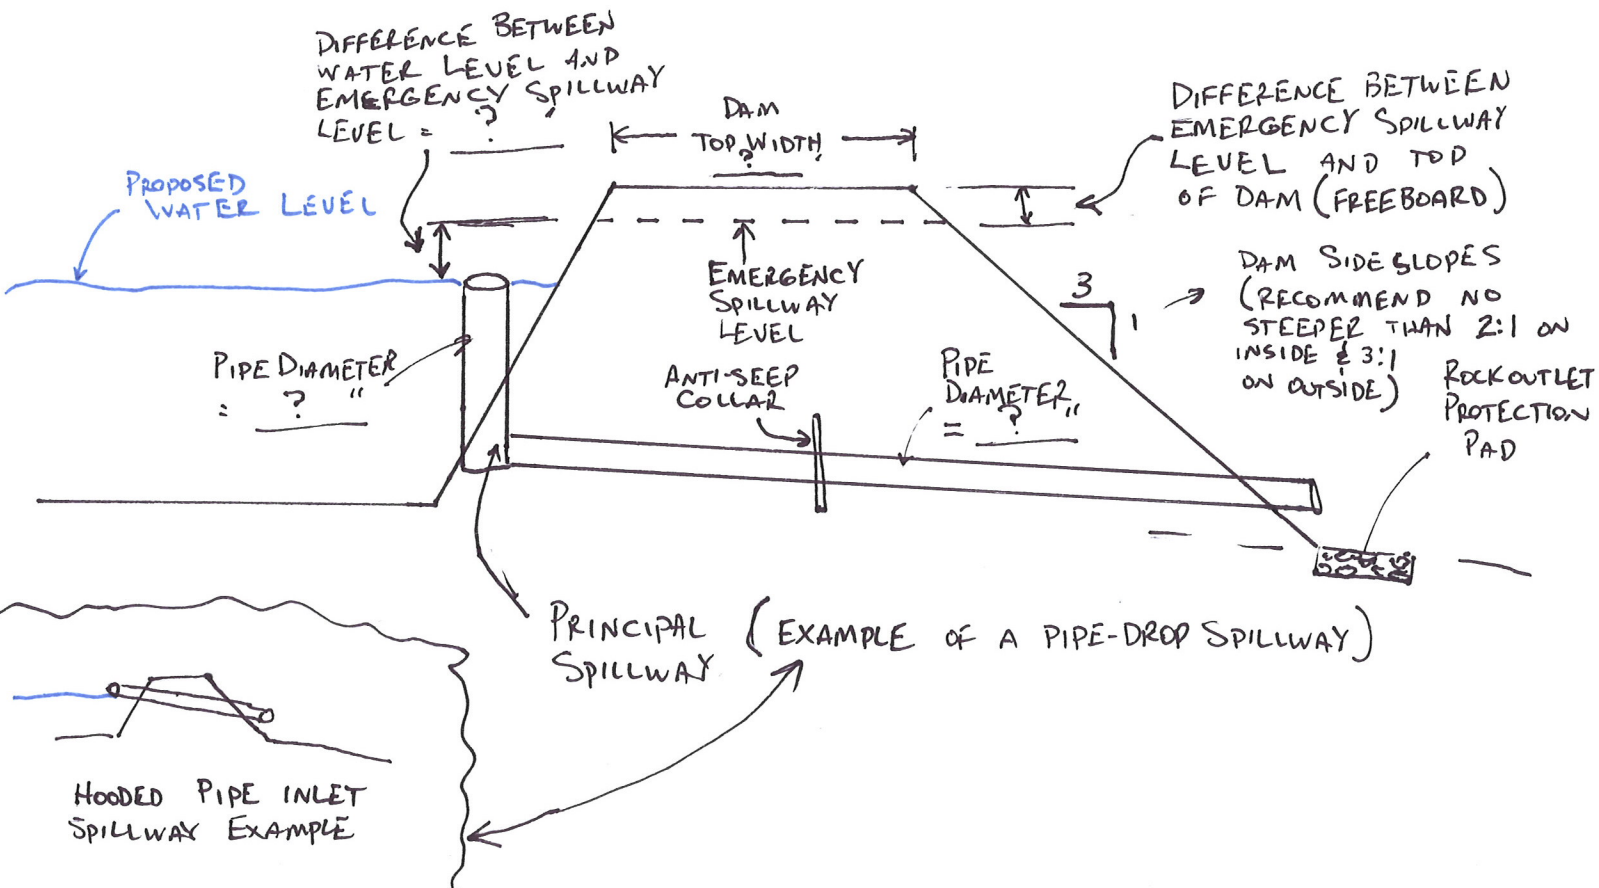 DIFFERENCE BETWEEN
WATER LEVEL AND
EMERGENCY SPILLWAY
LEVEL = ?'
DAM
TOP WIDTH
?'
DIFFERENCE BETWEEN
EMERGENCY SPILLWAY
LEVEL AND TOP
OF DAM (FREEBOARD)
PROPOSED
WATER LEVEL
EMERGENCY
SPILLWAY
LEVEL
3
1
DAM SIDESLOPES
(RECOMMEND NO
STEEPER THAN 2:1 ON
INSIDE & 3:1
ON OUTSIDE)
PIPE DIAMETER
= ? "
ANTI-SEEP
COLLAR
PIPE
DIAMETER
= ? "
ROCK OUTLET
PROTECTION
PAD
PRINCIPAL (EXAMPLE OF A PIPE-DROP SPILLWAY)
SPILLWAY
HOODED PIPE INLET
SPILLWAY EXAMPLE